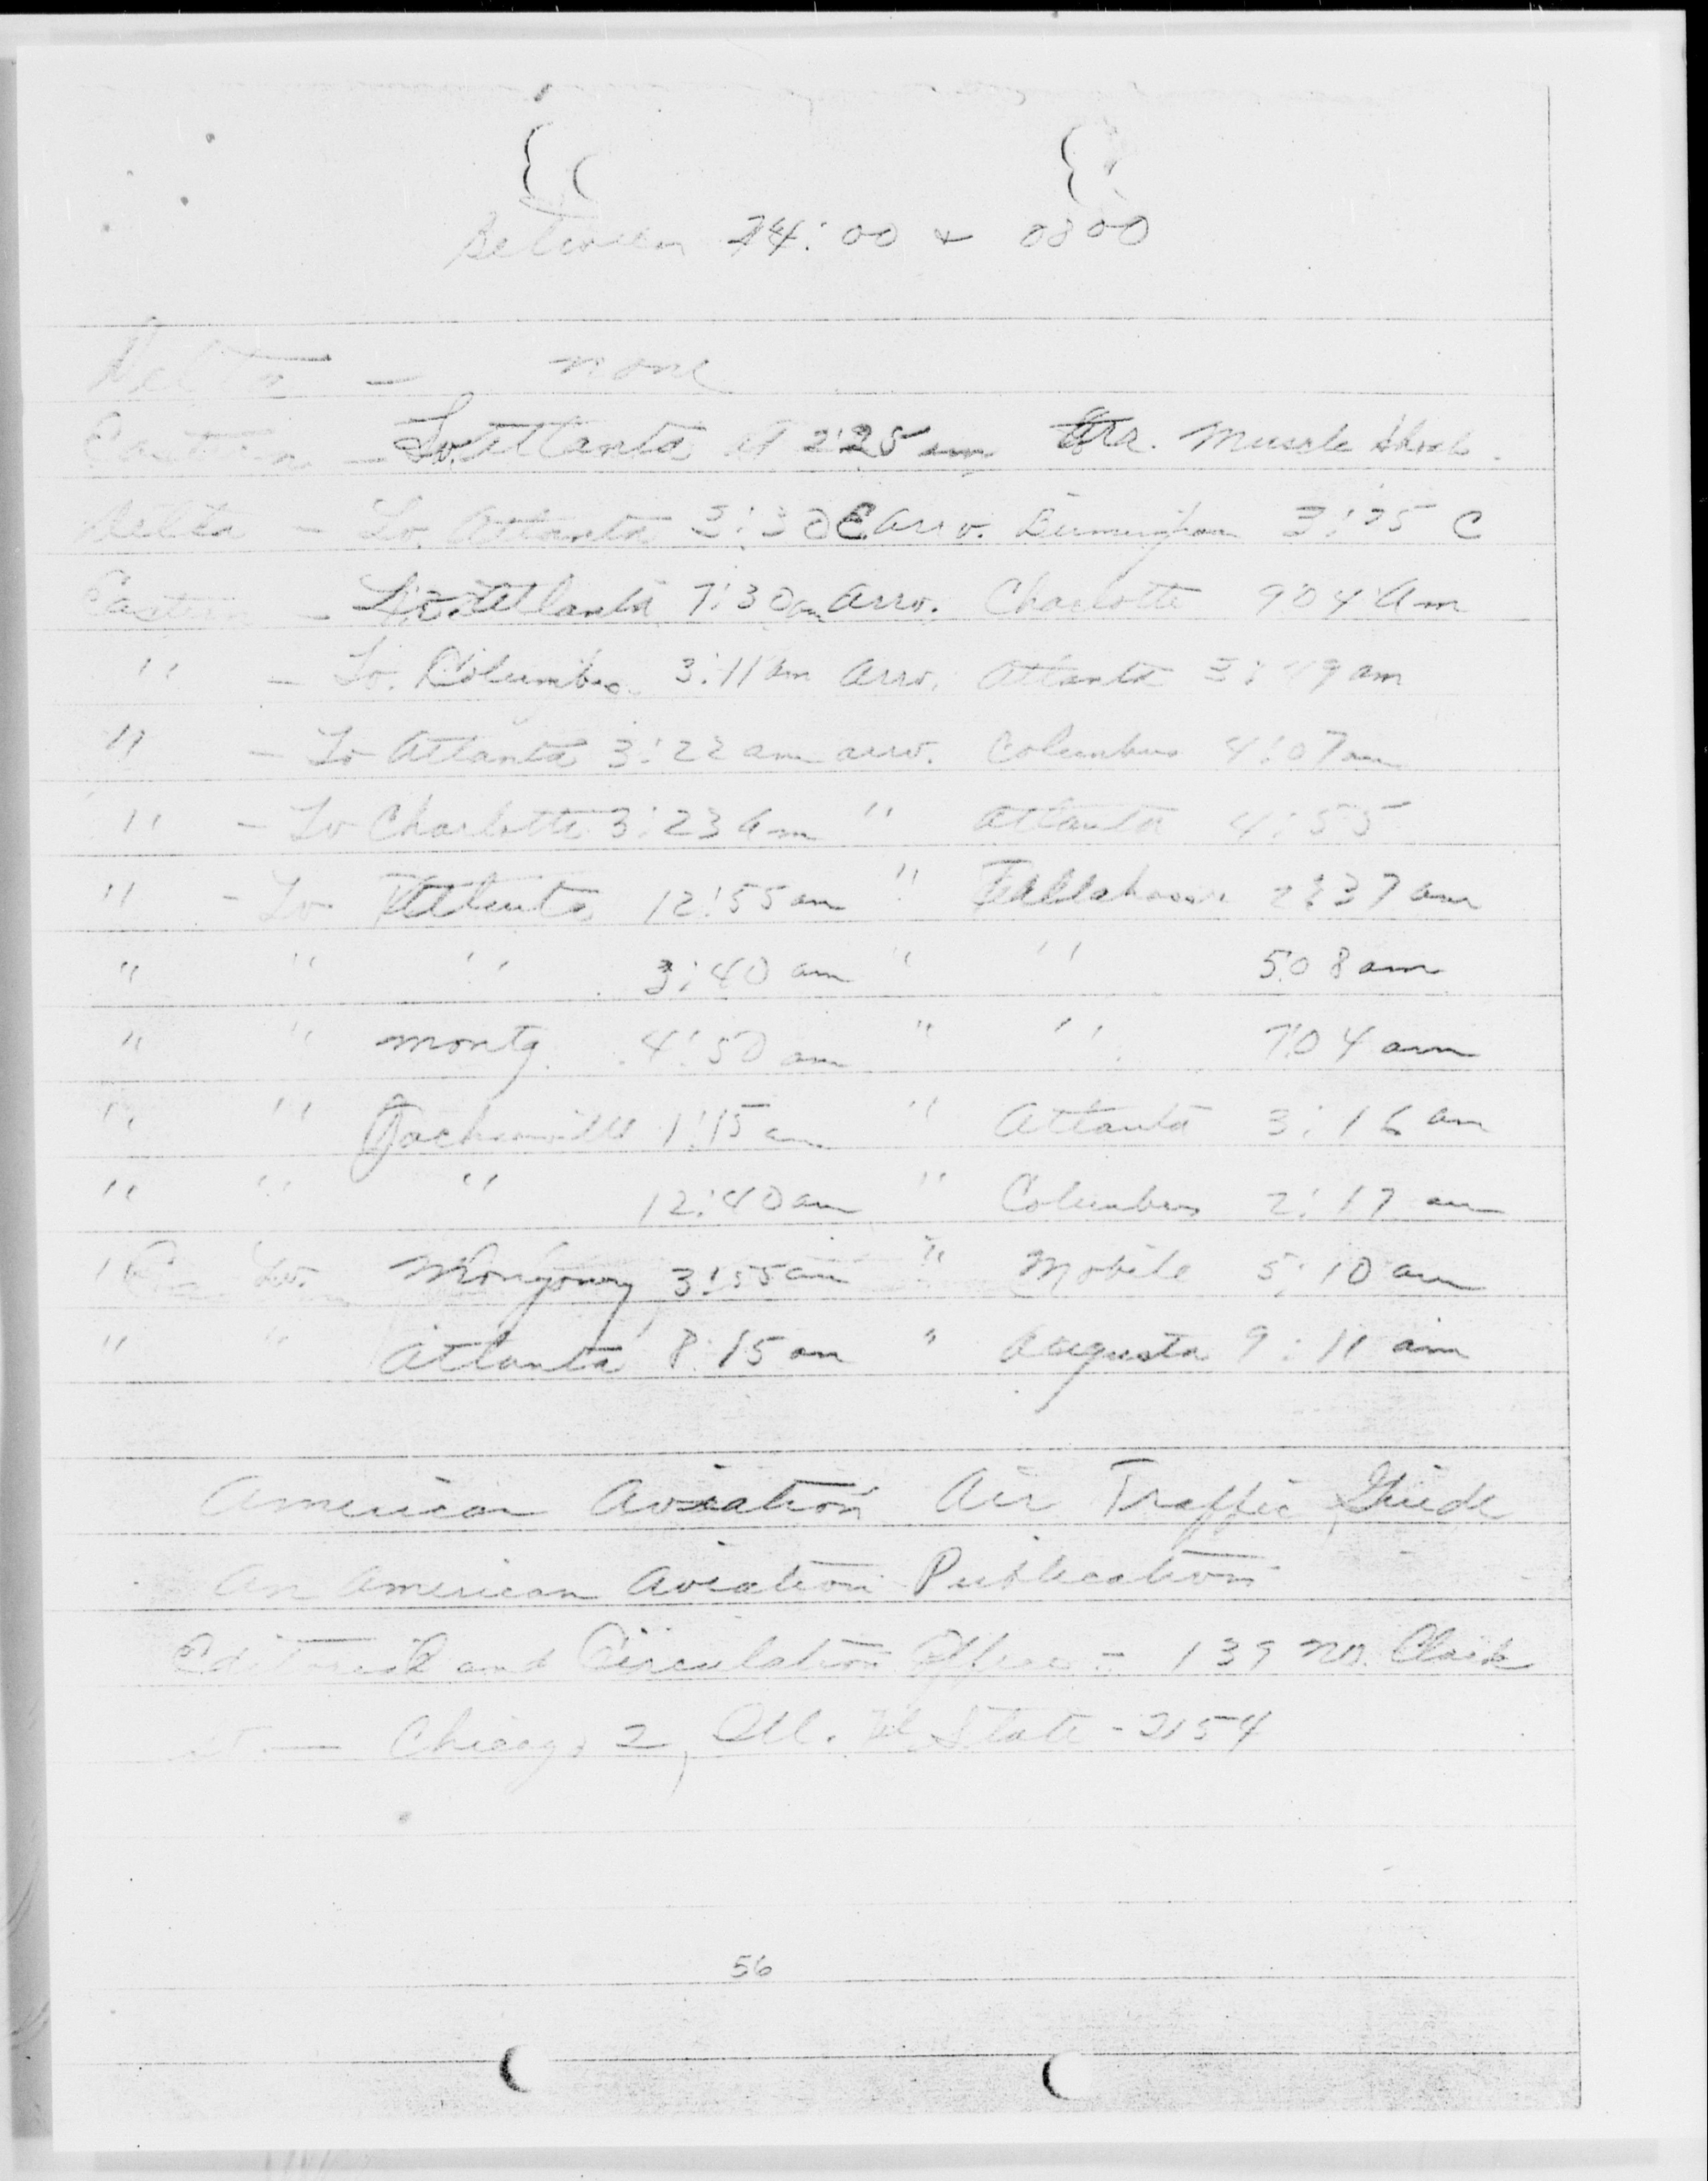 Between 24:00 & 0800
Delta - none
Eastern - Lv. Atlanta at 2:25 am Arr. Muscle Shoals.
Delta - Lv. Atlanta 3:30 E arrv. Birmingham 3:25 C
Eastern - Lv. Atlanta 7:30 am Arrv. Charlotte 9:04 Am
" - Lv. Columbus 3:11 am Arrv. Atlanta am
" - Lv Atlanta 3:22 am arrv. Columbus 4:07 am
" - Lv Charlotte 3:23 am " Atlanta 4:55
" - Lv Atlanta 12:55 am " Tallahassee 2:37 am
" " " 3:40 am " " 5:08 am
" " montg. 4:50 am " " 7:04 am
" " Jacksonville 1:15 am " Atlanta 3:16 am
" " " 12:40 am " Columbus 2:17 am
Lv. 3:55 am " Mobile 5:10 am
" " Atlanta 8:15 am " Augusta 9:11 am
American Aviation Air Traffic Guide
An American Aviation Publication
Editorial and Circulation Office - 139 No. Clark
st. — Chicago 2, Ill. Tel State - 2154
56